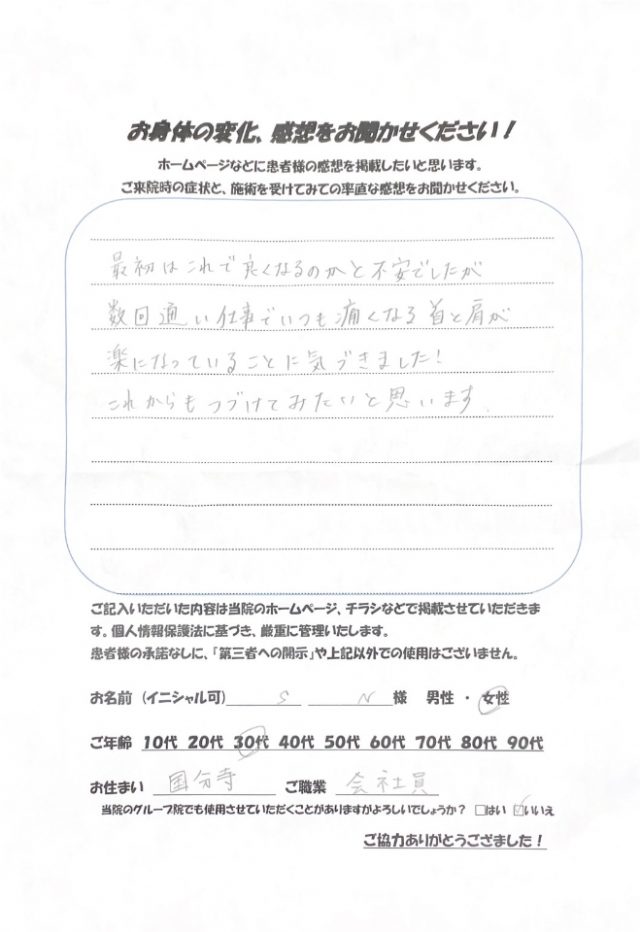 お身体の変化、感想をお聞かせください！
ホームページなどに患者様の感想を掲載したいと思います。
ご来院時の症状と、施術を受けてみての率直な感想をお聞かせください。
最初はこれで良くなるのかと不安でしたが
数回通い仕事でいつも痛くなる首と肩が
楽になっていることに気づきました！
これからもつづけてみたいと思います。
ご記入いただいた内容は当院のホームページ、チラシなどで掲載させていただきま
す。個人情報保護法に基づき、厳重に管理いたします。
患者様の承諾なしに、「第三者への開示」や上記以外での使用はございません。
お名前（イニシャル可） S N 様 男性・女性
ご年齢 10代 20代 30代 40代 50代 60代 70代 80代 90代
お住まい 国分寺 ご職業 会社員
当院のグループ院でも使用させていただくことがありますがよろしいでしょうか？ □はい ☑いいえ
ご協力ありがとうござました！